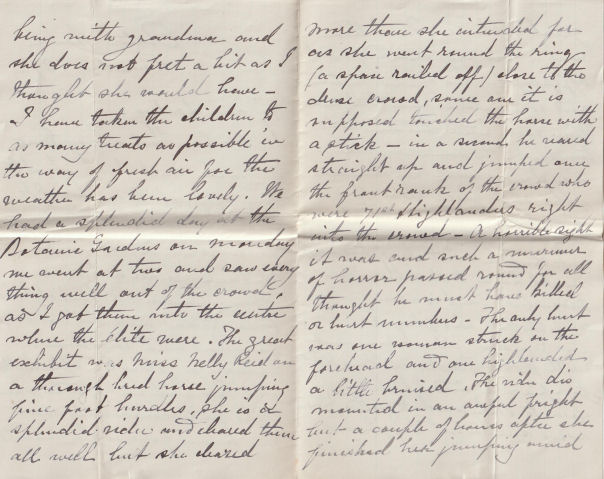 being with grandma and
she does not fret a bit as I
thought she would have -
I have taken the children to
as many treats as possible in
the way of fresh air for the
weather has been lovely. We
had a splendid day at the
Botanic Gardens on Monday
we went at two and saw every
thing well out of the crowd,
as I got them into the centre
where the élite were. The great
exhibit was Miss Nelly Reid on
a thorough bred horse jumping
five foot hurdles, she is a
splendid rider and cleared them
all well but she cleared
more than she intended for
as she went round the ring
(a space railed off) close to the
dense crowd, some one it is
supposed touched the horse with
a stick - in a second he reared
straight up and jumped over
the front rank of the crowd who
were 71st Highlanders right
into the crowd - A horrible sight
it was and such a murmur
of horror passed round for all
thought he must have killed
or hurt numbers - The only hurt
was one woman struck on the
forehead and one highlander
a little bruised. The rider dis
mounted in an awful fright
but a couple of hours after she
finished her jumping amid